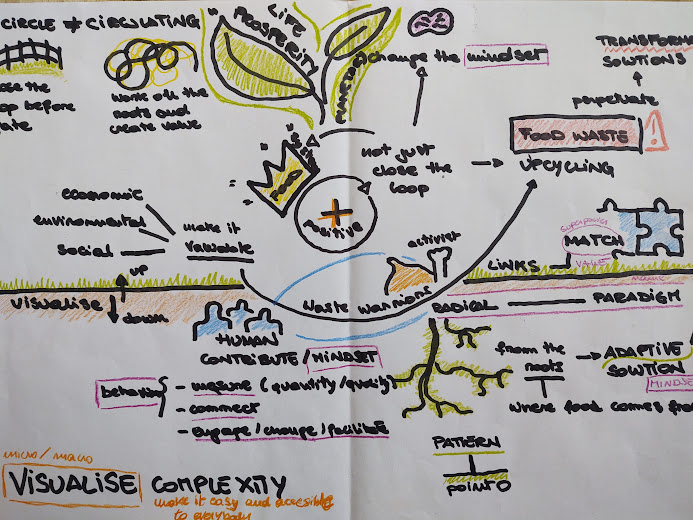 CIRCLE ≠ CIRCULATING
LIFE
PROSPERITY
change the mindset
TRANSFORM
SOLUTIONS
perpetuate
work off the
roots and
create value
FOOD WASTE
UPCYCLING
not just
close the
loop
FOOD
+
Positive
economic
environmental
social
make it
valuable
activist
LINKS
MATCH
VALUE
up
VISUALISE
down
waste warriors
RADICAL
PARADIGM
HUMAN
CONTRIBUTE / MINDSET
behavior
- measure (quantity/quality)
- connect
- engage / change / facilitate
from the
roots
ADAPTIVE
SOLUTION
MINDSE
where food comes fro
PATTERN
POINFO
micro / macro
VISUALISE COMPLEXITY
make it easy and accesible
to everybody